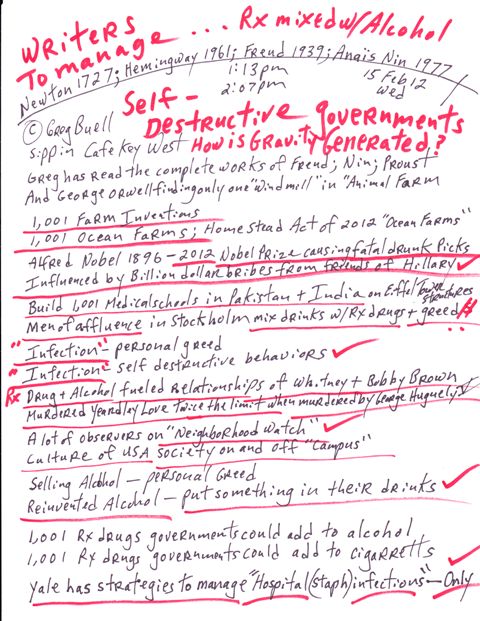 WRITERS ... Rx mixed w/Alcohol
To manage ...
Newton 1727; Hemingway 1961; Freud 1939; Anais Nin 1977
1:13pm 15 Feb 12
2:07pm Wed
Self-
Destructive governments
© Greg Buell
Sippin Cafe Key West How is Gravity Generated?
Greg has read the complete works of Freud; Nin; Proust
And George Orwell finding only one "Windmill" in "Animal Farm
1,001 Farm Inventions
1,001 Ocean Farms; Homestead Act of 2012 "Ocean Farms"
Alfred Nobel 1896-2012 Nobel Prize causing fatal drunk Picks
Influenced by Billion dollar bribes from friends of Hillary
Build 1,001 Medical schools in Pakistan + India on Eiffel structures
Men of affluence in Stockholm mix drinks w/Rx drugs + greed
"Infection" personal greed
"Infection" self destructive behaviors
Rx Drug + Alcohol fueled Relationships of Whitney + Bobby Brown
Murdered Yeardley Love twice the limit when murdered by George Huguely V
A lot of observers on "Neighborhood Watch"
Culture of USA society on and off "Campus"
Selling Alcohol - personal Greed
Reinvented Alcohol - put something in their drinks
1,001 Rx drugs governments could add to alcohol
1,001 Rx drugs governments could add to cigarretts
Yale has strategies to manage "Hospital (staph) infections" - Only